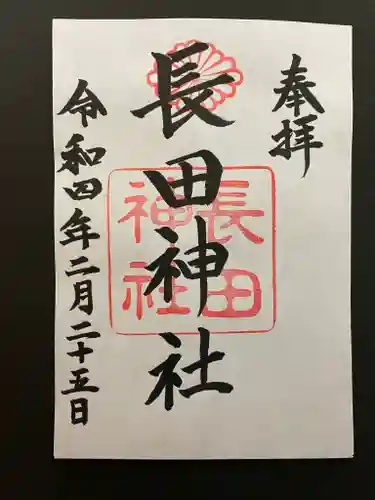 奉拝
長田神社
長田
神社
令和四年二月二十五日